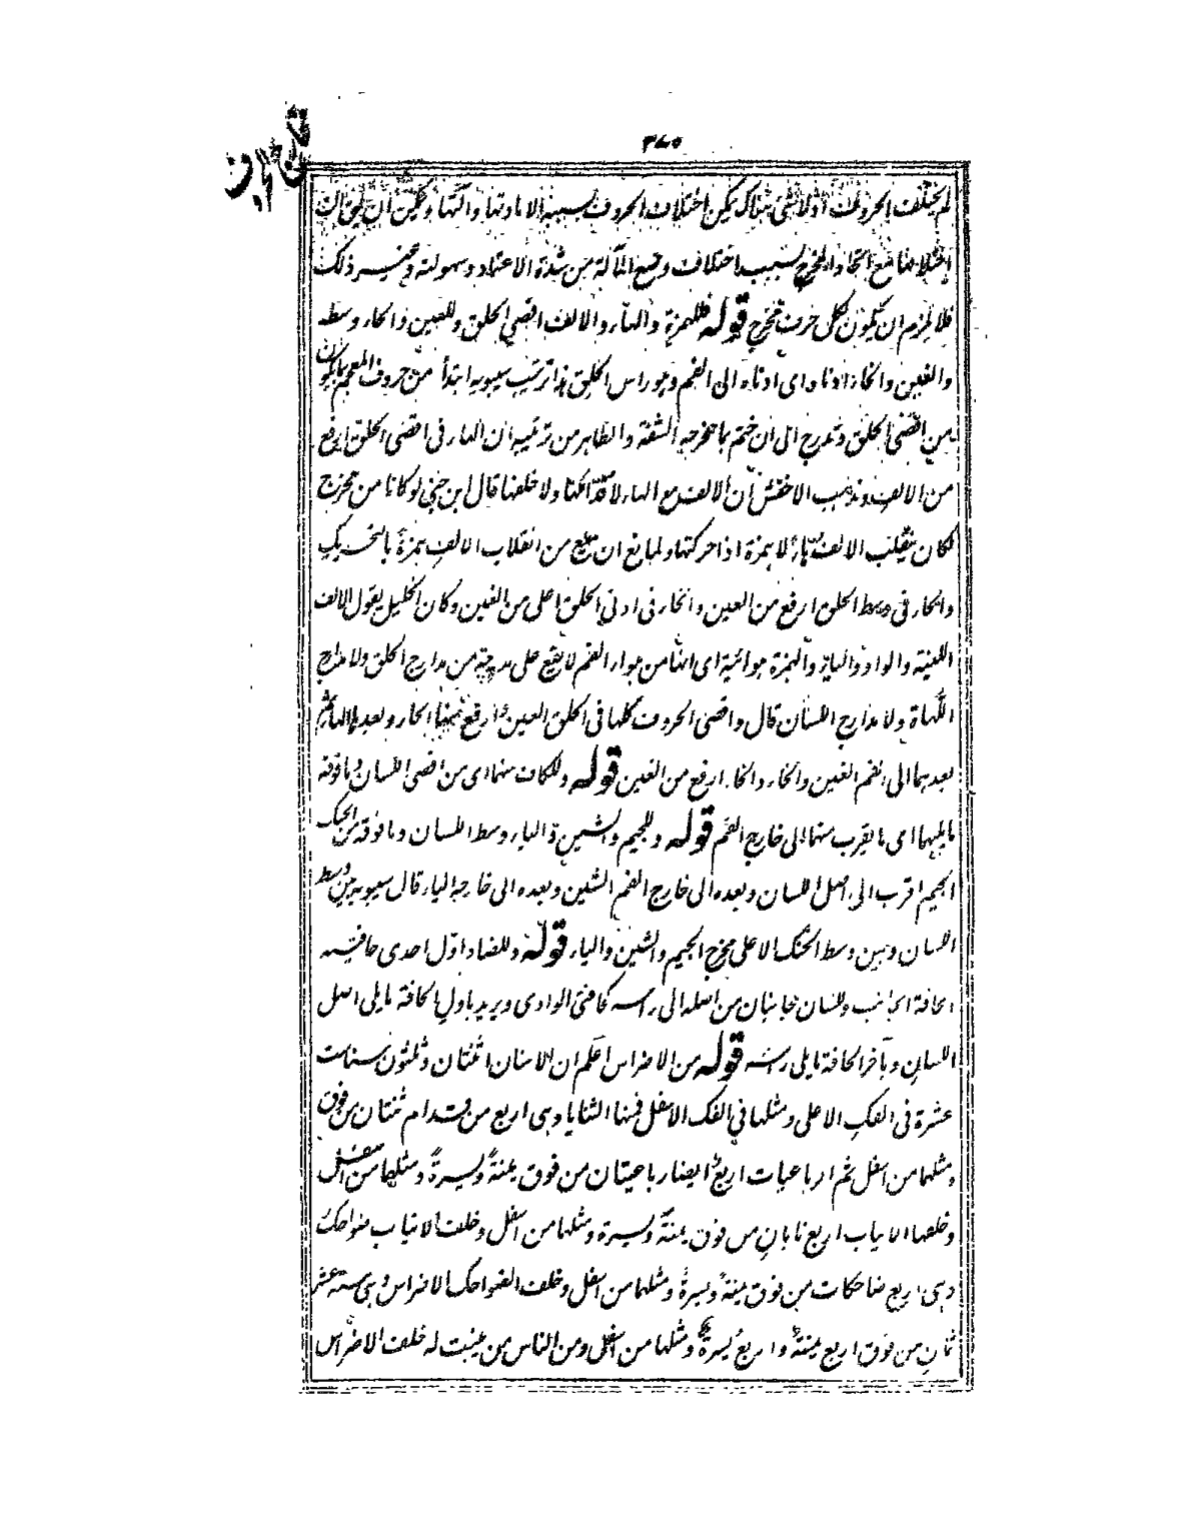 مخارج الحروف
٣٤٥
لم يختلف الحروف لان اذ لا شئ هناك يمكن اختلاف الحروف بسببه الا مادتها وآلتها ويمكن ان يقال ان
اختلافها مع اتحاد المخرج بسبب اختلاف وضع الآلة من شدة الاعتماد وسهولته وغير ذلك
فلا يلزم ان يكون لكل حرف مخرج قوله فللهمزة والهاء والالف اقصى الحلق وللعين والحاء وسطه
والغين والخاء ادناه اى ادناه الى الفم وهو راس الحلق هذا ترتيب سيبويه ابتدأ من حروف المعجم بما يكون
من اقصى الحلق وتدرج الى ان ختم بما مخرجه الشفة والظاهر من ترتيبه ان الهاء فى اقصى الحلق ارفع
من الالف ومذهب الاخفش ان الالف مع الهاء لا قدامها ولا خلفها قال ابن جنى لو كانا من مخرج
لكان ينقلب الالف هاء لا همزة اذا حركتها ولمانع ان يمنع من انقلاب الالف همزة بالتحريك
والحاء فى وسط الحلق ارفع من العين والخاء فى ادنى الحلق اعلى من الغين وكان الخليل يقول الالف
اللينة والواو والياء والهمزة هوائية اى انها من هواء الفم لا يقع على مدرجة من مدارج الحلق ولا مدارج
اللهاة ولا مدارج اللسان قال واقصى الحروف كلها فى الحلق العين وارفع منها الحاء وبعدها الهاء ثم
بعدهما الى الفم الغين والخاء والخاء ارفع من الغين قوله وللكاف منهما اى من اقصى اللسان وما فوقه
ما يليهما اى ما يقرب منهما الى خارج الفم قوله وللجيم والشين والياء وسط اللسان وما فوقه من الحنك
الجيم اقرب الى اصل اللسان وبعده الى خارج الفم الشين وبعده الى خارجه الياء قال سيبويه بين وسط
اللسان وبين وسط الحنك الاعلى مخرج الجيم والشين والياء قوله وللضاد اول احدى حافتيه
الحافة الجانب وللسان جانبان من اصله الى راسه كحافتى الوادى ويريد باول الحافة ما يلى اصل
اللسان وبآخر الحافة ما يلى راسه قوله من الاضراس اعلم ان الاسنان اثنتان وثلثون سنا ست
عشرة فى الفك الاعلى ومثلها فى الفك الاسفل فمنها الثنايا وهى اربع من قدام ثنتان من فوق
ومثلهما من اسفل ثم الرباعيات اربع ايضا رباعيتان من فوق يمنة ويسرة ومثلهما من اسفل
وخلفها الانياب اربع نابان من فوق يمنة ويسرة ومثلهما من اسفل وخلف الانياب ضواحك
وهى اربع ضاحكات من فوق يمنة ويسرة ومثلهما من اسفل وخلف الضواحك الاضراس وهى ستة عشر
ثمان من فوق اربع يمنة واربع يسرة ومثلها من اسفل ومن الناس من ينبت له خلف الاضراس